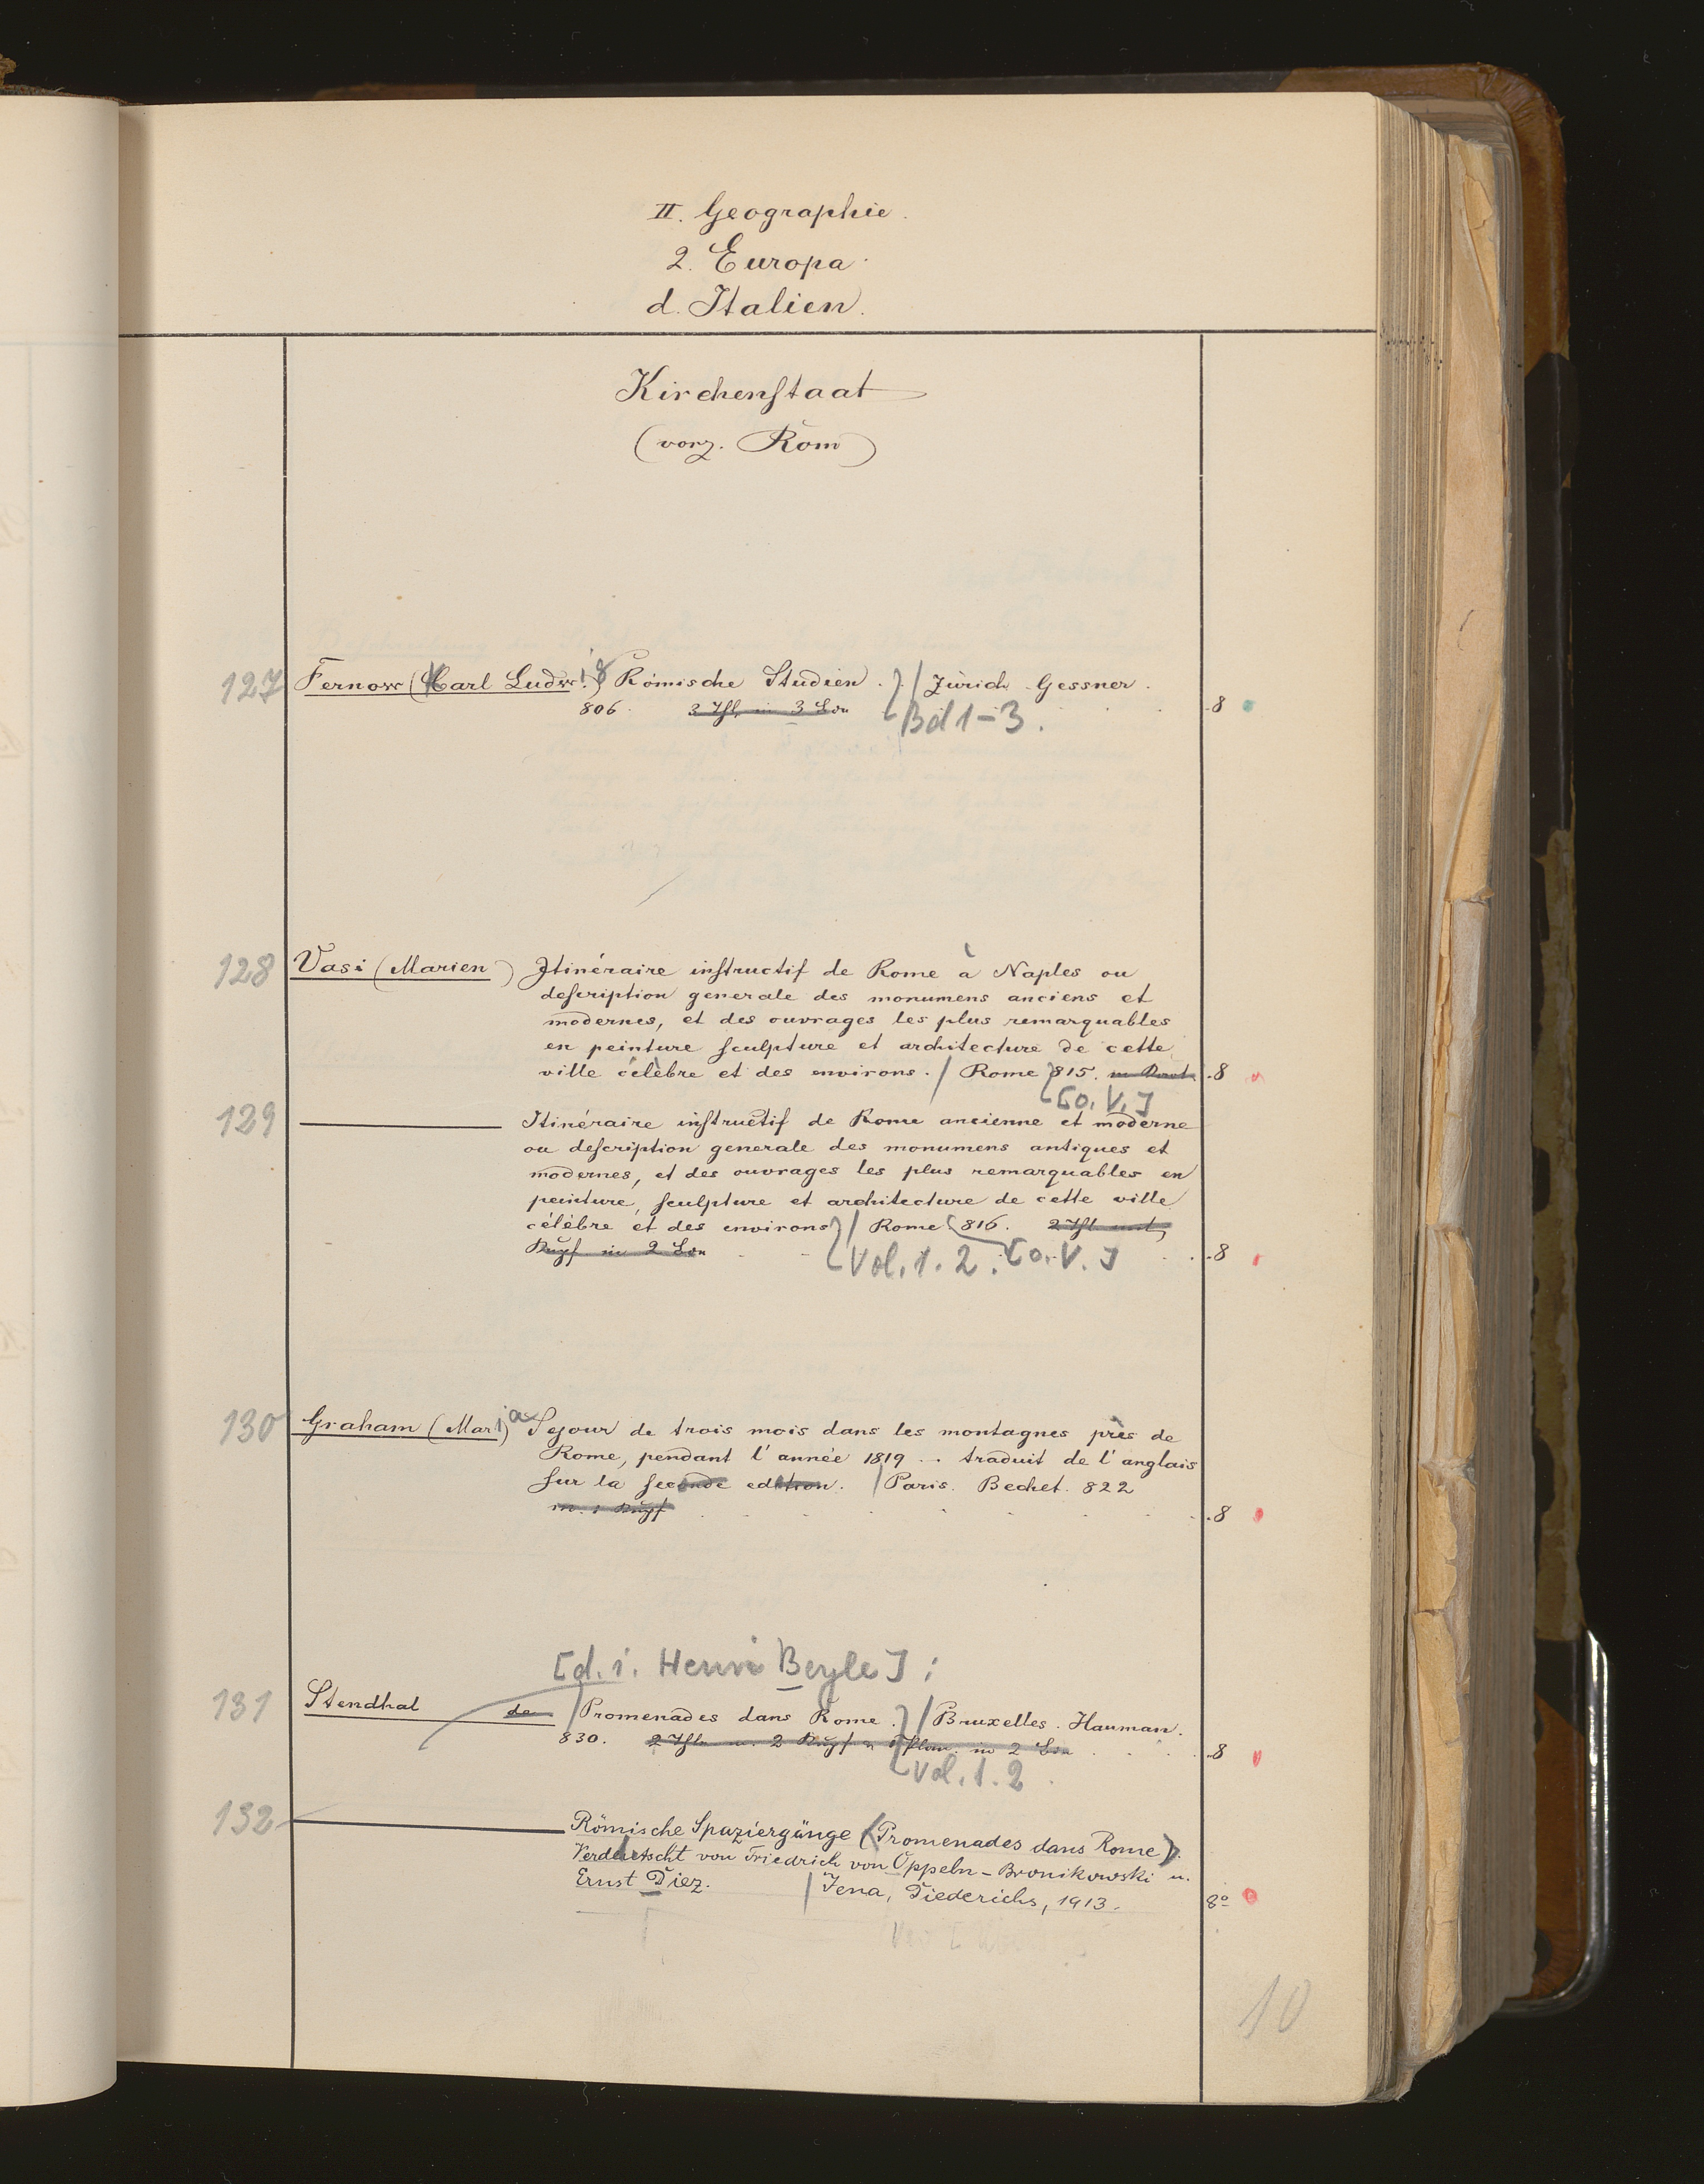 II. Geographie.
2. Europa
d. Italien.
Kirchenstaat
(vorz. Rom)
127 Fernow (Carl Ludw.ig) Römische Studien. / Zürich Gessner.
806. 3 Thl. in 3 Bdn 8
Bd 1-3.
128 Vasi (Marien) Itinéraire instructif de Rome à Naples ou
description generale des monumens anciens et
modernes, et des ouvrages les plus remarquables
en peinture sculpture et architecture de cette
ville célèbre et des environs. / Rome 815. 8
[o. V.]
129 Itinéraire instructif de Rome ancienne et moderne
ou description generale des monumens antiques et
modernes, et des ouvrages les plus remarquables en
peinture, sculpture et architecture de cette ville
célèbre et des environs / Rome 816. 2 Thl. mit
Kupf in 2 Bdn 8
Vol. 1. 2. [o. V.]
130 Graham (Maria) Sejour de trois mois dans les montagnes près de
Rome, pendant l'année 1819 .. traduit de l'anglais
sur la seconde edition. / Paris. Bechet. 822
m. 1 Kupf 8
[d. i. Henri Beyle] :
131 Stendhal de / Promenades dans Rome. / Bruxelles. Hauman.
830. 2 Thle m. 2 Kupf u 1 Plan. in 2 Bdn 8
Vol. 1. 2
132 Römische Spaziergänge (Promenades dans Rome).
Verdeutscht von Friedrich von Oppeln-Bronikowski u.
Ernst Diez. / Jena, Diederichs, 1913. 8°
10